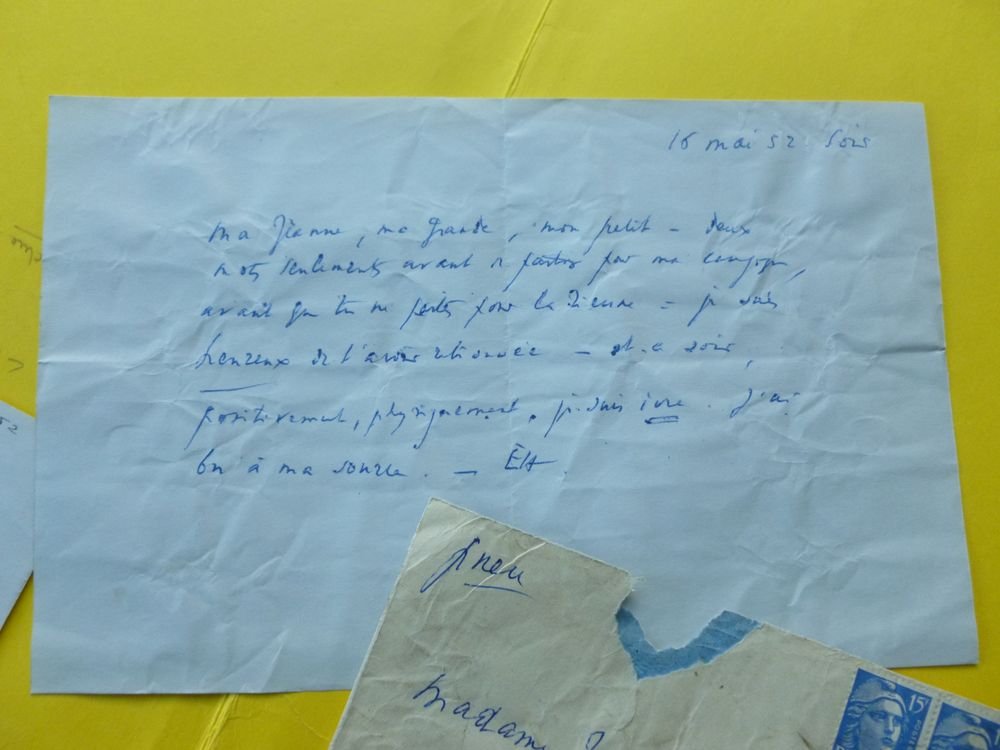 16 mai 52. Soir
Ma Jeanne, ma grande, mon petit – deux
mots seulement avant de partir pour ma
avant que tu ne partes pour la tienne – je suis
heureux de t'avoir retrouvée – et ce soir,
positivement, physiquement, je suis ivre. J'ai
bu à ma source. –
pneu
Madame
15
52